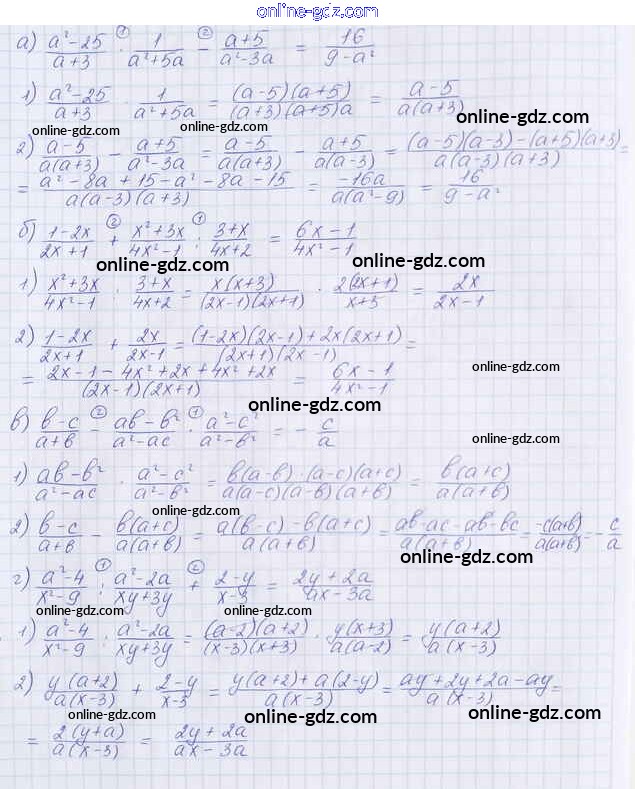 online-gdz.com
а) (a²-25)/(a+3) · 1/(a²+5a) - (a+5)/(a²-3a) = 16/(9-a²)
1) (a²-25)/(a+3) · 1/(a²+5a) = (a-5)(a+5)/((a+3)(a+5)a) = (a-5)/(a(a+3))
online-gdz.com online-gdz.com online-gdz.com
2) (a-5)/(a(a+3)) - (a+5)/(a²-3a) = (a-5)/(a(a+3)) - (a+5)/(a(a-3)) = ((a-5)(a-3)-(a+5)(a+3))/(a(a-3)(a+3)) =
= (a²-8a+15-a²-8a-15)/(a(a-3)(a+3)) = -16a/(a(a²-9)) = 16/(9-a²)
б) (1-2x)/(2x+1) + (x²+3x)/(4x²-1) : (3+x)/(4x+2) = (6x-1)/(4x²-1)
online-gdz.com online-gdz.com
1) (x²+3x)/(4x²-1) : (3+x)/(4x+2) = x(x+3)/((2x-1)(2x+1)) · 2(2x+1)/(x+3) = 2x/(2x-1)
2) (1-2x)/(2x+1) + 2x/(2x-1) = ((1-2x)(2x-1)+2x(2x+1))/((2x+1)(2x-1)) =
online-gdz.com
= (2x-1-4x²+2x+4x²+2x)/((2x-1)(2x+1)) = (6x-1)/(4x²-1)
online-gdz.com
в) (b-c)/(a+b) - (ab-b²)/(a²-ac) · (a²-c²)/(a²-b²) = -c/a
online-gdz.com
1) (ab-b²)/(a²-ac) · (a²-c²)/(a²-b²) = b(a-b)·(a-c)(a+c)/(a(a-c)(a-b)(a+b)) = b(a+c)/(a(a+b))
online-gdz.com online-gdz.com
2) (b-c)/(a+b) - b(a+c)/(a(a+b)) = (a(b-c)-b(a+c))/(a(a+b)) = (ab-ac-ab-bc)/(a(a+b)) = -c(a+b)/(a(a+b)) = -c/a
online-gdz.com
г) (a²-4)/(x²-9) : (a²-2a)/(xy+3y) + (2-y)/(x-3) = (2y+2a)/(ax-3a)
online-gdz.com online-gdz.com online-gdz.com
1) (a²-4)/(x²-9) : (a²-2a)/(xy+3y) = (a-2)(a+2)/((x-3)(x+3)) · y(x+3)/(a(a-2)) = y(a+2)/(a(x-3))
2) y(a+2)/(a(x-3)) + (2-y)/(x-3) = (y(a+2)+a(2-y))/(a(x-3)) = (ay+2y+2a-ay)/(a(x-3)) =
online-gdz.com online-gdz.com online-gdz.com
= 2(y+a)/(a(x-3)) = (2y+2a)/(ax-3a)